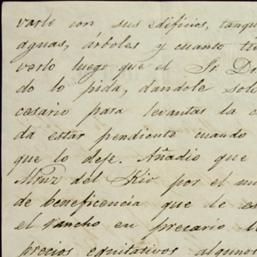 varle con sus edificios, tanqu
aguas, árboles y cuanto ti
varlo luego que el Sr. D
do lo pida, dandole sol
cesario para levantar la c
da estar pendiente cuando
que lo deje. Añadio que
Muz del Rio por el m
de beneficencia que le e
el rancho en precario l
precios equitativos algunos